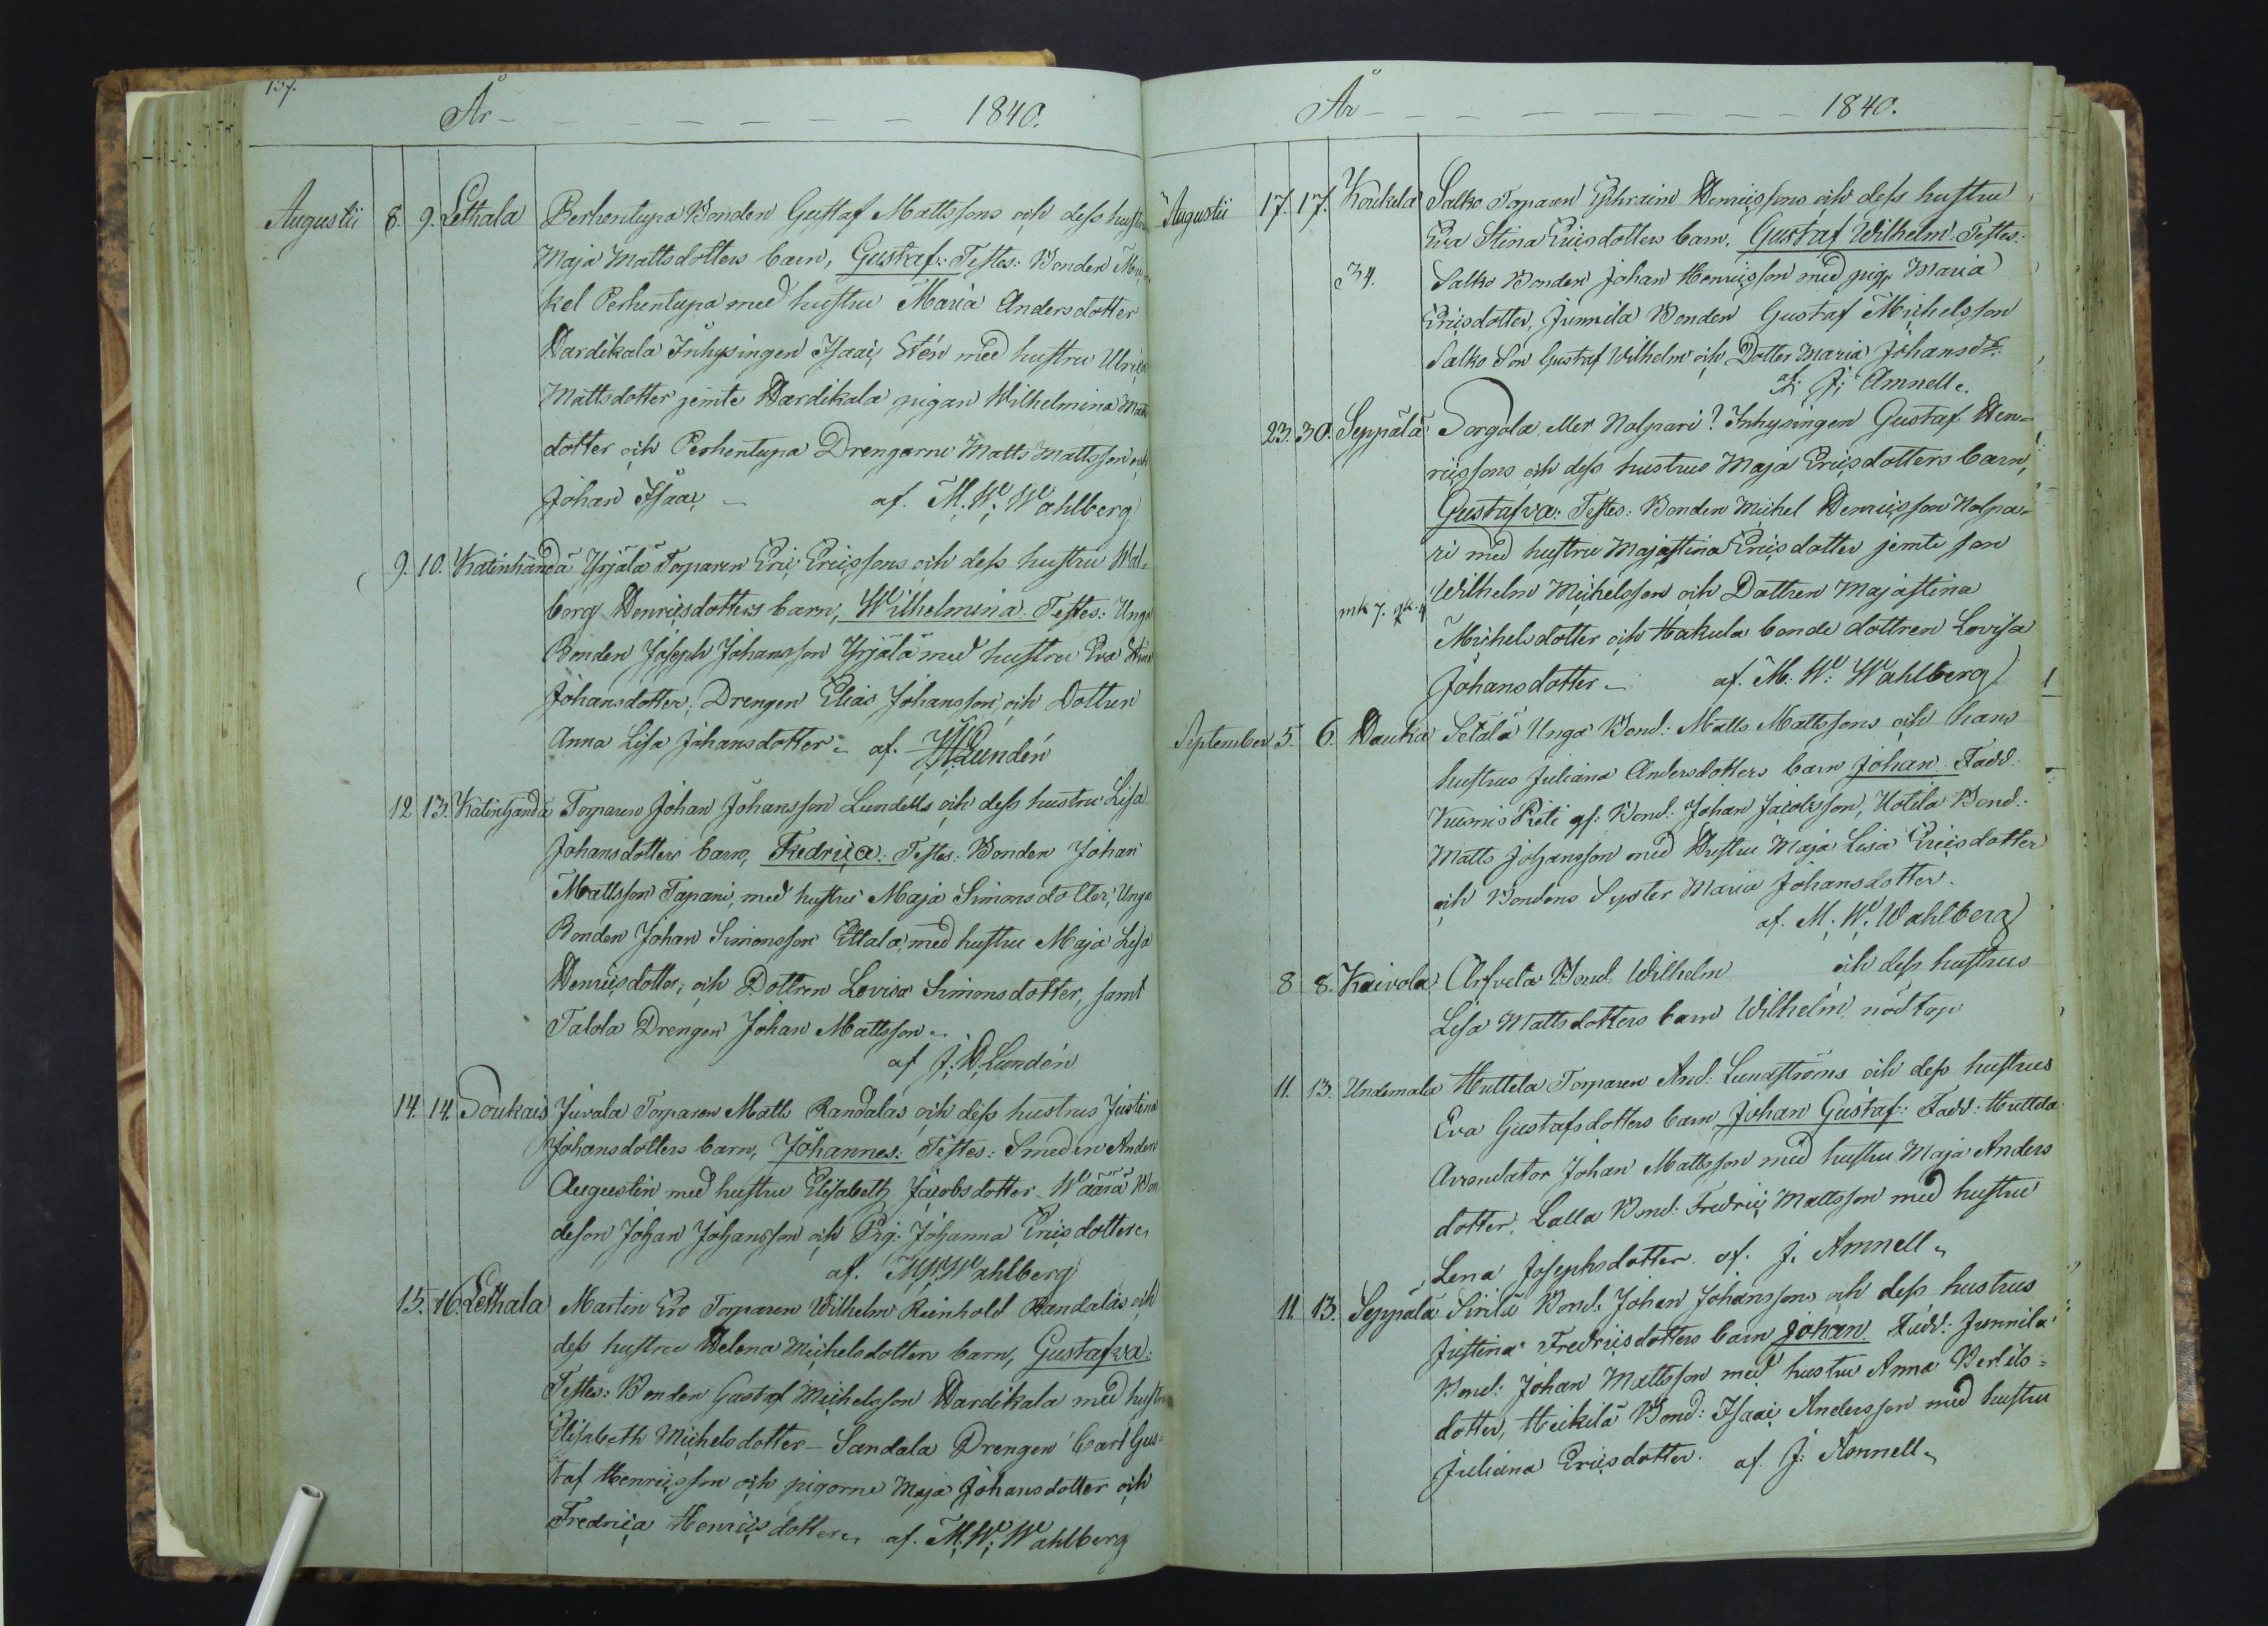 137.
År - - - - - - - 1840.
Augustii 8. 9. Lethala Perhentupa Bonden Gustaf Mattssons och dess hustru
Maja Mattsdotters barn, Gustaf: Testes: Bonden
kel Perhentupa med hustru Maria Andersdotter
Hardikala Inhysingen Isaac Stén med hustru Ulrica
Mattsdotter jemte Hardikala pigan Wilhelmina Matts
dotter och Perhentupa Drengarne Matts Mattsson och
Johan Isaac - af. M. W. Wahlberg
9. 10. Katinhända Yrjälä Torparen Eric Ericssons och dess hustru Wal-
borg Henricsdotters barn, Wilhelmina. Testes: Unga
Bonden Joseph Johansson Yrjälä med hustru Eva Stina
Johansdotter, Drengen Elias Johansson, och Dottren
Anna Lisa Johansdotter. af. Lundén
12 13. Katinhända Torparen Johan Johansson Lundells och dess hustru Lisa
Johansdotters barn, Fredrica: Testes: Bonden Johan
Mattsson Tapani, med hustru Maja Simonsdotter, Unga
Bonden Johan Simonsson Ettala, med hustru Maja Lisa
Henricsdotter, och Dottren Lovisa Simonsdotter, samt
Talola Drengen Johan Mattsson.
af J. H. Lundén
14. 14. Soukais Juvala Torparen Matts Randalas och dess hustrus Justina
Johansdotters barn, Johannes: Testes: Smeden Anders
Augustin med hustru Elisabeth Jacobsdotter - Wäärä Bon
deson Johan Johansson och Pig: Johanna Ericsdotter
af. M. W. Wahlberg
15. 16. Lethala Martin Ero Torparen Wilhelm Reinhold Randalas och
dess hustru Helena Michelsdotters barn, Gustafva:
Testes: Bonden Gustaf Michelsson Hardikala med hustru
Elisabeth Michelsdotter - Sandala Drengen Carl Gus-
taf Henricsson och pigorne Maja Johansdotter och
Fredrica Henricsdotter, af. M. W. Wahlberg
År - - - - - - - 1840.
Augustii 17. 17. Koukola Salko Torparen Ephraim Henricssons och dess hustru
Eva Stina Ericsdotters barn, Gustaf Wilhelm. Testes:
34. Salko Bonden Johan Henricsson med pig: Maria
Ericsdotter, Junnila Bonden Gustaf Michelsson
Salko Son Gustaf Wilhelm och Dotter Maria Johansdr.
af. J. Amnell.
23. 30. Seppälä Sorgola eller Nolpari? Inhysingen Gustaf Hen-
ricssons och dess hustrus Maja Ericsdotters barn,
Gustafva: Testes: Bonden Michel Henricsson Nolpa-
ri med hustru Majastina Ericsdotter jemte son
Wilhelm Michelsson och Dottren Majastina
mk 7. qk. 4 Michelsdotter och Hakula bonde dottren Lovisa
Johansdotter - af. M. W. Wahlberg
September 5. 6. Hauka Setälä Unga Bond: Matts Mattssons och hans
hustrus Juliana Andersdotters barn Johan. Fadd:
Kuonis Pieti gf: Bond: Johan Jacobsson, Uotila Bond:
Matts Johansson med Hustru Maja Lisa Ericsdotter
och Bondens Syster Maria Johansdotter.
af. M. W. Wahlberg
8 8. Kaivola Arfvela Bond: Wilhelm och dess hustrus
Lisa Mattsdotters barn Wilhelm nödtop
11. 13. Undemala Huttela Torparen And: Lundströms och dess hustrus
Eva Gustafsdotters barn Johan Gustaf: Fadd: Huttela
Arrendator Johan Mattsson med hustru Maja Anders
dotter, Lalla Bond: Fredric Mattsson med hustru
Lena Josephsdotter. af. J. Amnell
11. 13. Seppälä Sirilä Bond: Johan Johanssons och dess hustrus
Justina Fredricsdotters barn Johan. Fadd: Junnila
Bond: Johan Mattsson med hustru Anna Bertils-
dotter, Heikilä Bond: Isaac Andersson med hustru
Juliana Ericsdotter. af. J. Amnell